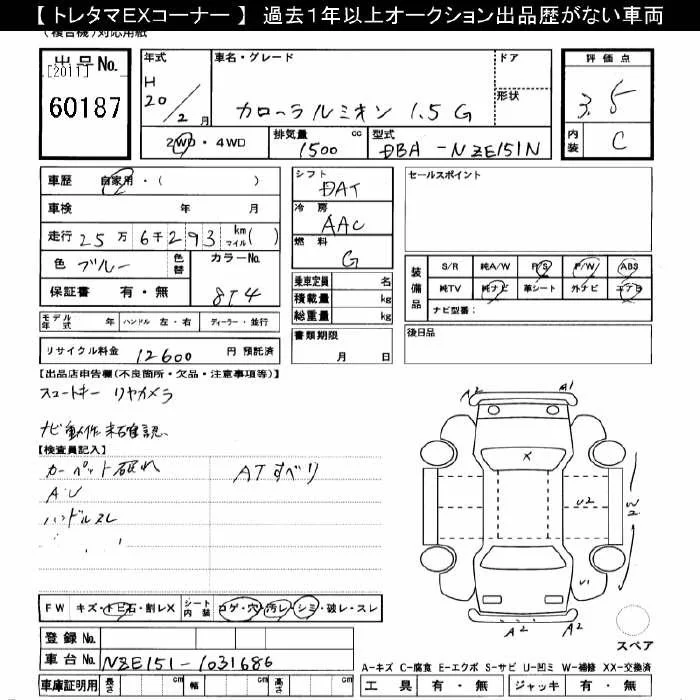 【 トレタマEXコーナー 】 過去1年以上オークション出品歴がない車両
(複合機)対応用紙
出品No.
[2011]
60187
年式
H
20/2月
車名・グレード
カローラルミオン 1.5 G
ドア
形状
評価点
3.5
内装
C
2WD・4WD
排気量
1500 cc
型式
DBA-NZE151N
車歴 自家用・( )
車検 年 月
走行 25万6千293 km マイル ( )
色 ブルー
色替
カラーNo.
8T4
保証書 有・無
モデル年式 年 ハンドル 左・右 ディーラー・並行
リサイクル料金 12600 円 預託済
シフト
DAT
冷房
AAC
燃料
G
乗車定員 名
積載量 kg
総重量 kg
書類期限
月 日
セールスポイント
装備品
S/R 純A/W P/S P/W ABS
純TV 純ナビ 革シート 外ナビ エアB
ナビ型番:
後日品
【出品店申告欄(不良箇所・欠品・注意事項等)】
スマートキー リヤカメラ
ナビ動作未確認
【検査員記入】
カーペット破れ
ATすべり
AU
ハンドルスレ
A2 A1
X
U2
W2
U1
A2 A2
スペア
FW キズ・トビ石・割レX
シート内装 コゲ・穴・汚レ・シミ・破レ・スレ
登録 No.
車台 No. NZE151-1031686
車庫証明用 長さ cm 幅 cm 高さ cm
A−キズ C−腐食 E−エクボ S−サビ U−凹ミ W−補修 XX−交換済
工具 有・無 ジャッキ 有・無